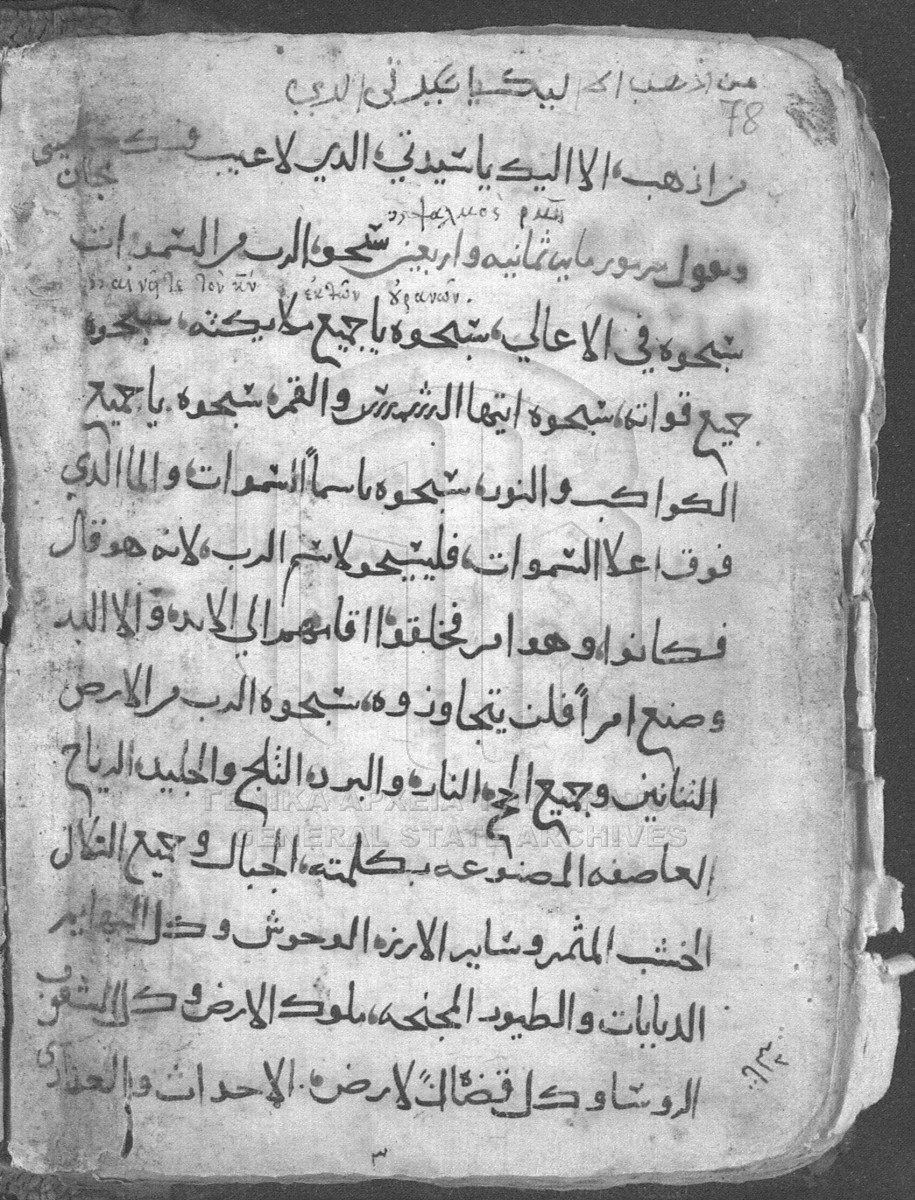 من اذهب الا اليك يا سيدتي الذي
78
من اذهب، الا اليك يا سيدتي، الذي لا عيب فيك
ونقول مزمور مايه ثمانيه واربعين سبحوا، الرب من السموات
αἰνεῖτε τὸν κν ἐκ τῶν οὐρανῶν.
سبحوه في الاعالي، سبحوه يا جميع ملايكته، سبحوه
جميع قواته، سبحوه ايتها الشمس والقمر، سبحوه يا جميع
الكواكب والنور، سبحوه يا سماً السموات، والما الذي
فوق اعلا السموات، فليسبحو لاسم الرب، لانه هو قال
فكانوا، وهو امر فخلقوا، اقامهم الي الابد، والا البد
وصنع امراً فلن يتجاوزوه، سبحوه الرب من الارض
التنانين وجميع اللجج، النار، والبرد، الثلج والجليد، الرياح
العاصفه المصنوعه بكلمته، الجبال وجميع التلال
الخشب المثمر وساير الارزه الوحوش وكل البهايم
الدبابات والطيور المجنحه، ملوك الارض وكل الشعوب
الروسا وكل قضاة الارض، الاحداث والعذاري
٣
ΓΕΝΙΚΑ ΑΡΧΕΙΑ
GENERAL STATE ARCHIVES